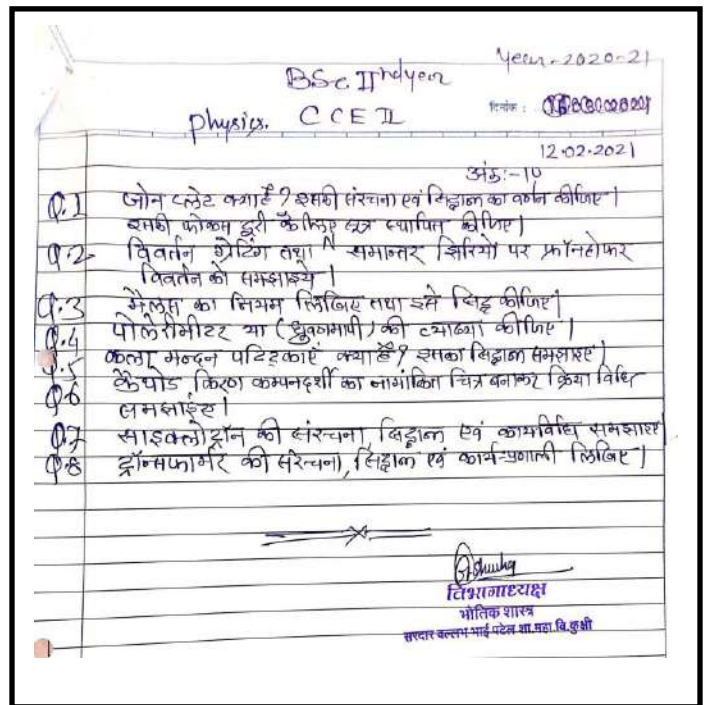 Year-2020-21
B.Sc IIndyear
Physics. CCE II
दिनांक :
12.02.2021
अंक:-10
Q.1 जोन प्लेट क्या है ? इसकी संरचना एवं सिद्धान्त का वर्णन कीजिए |
इसकी फोकस दूरी के लिए सूत्र स्थापित कीजिए|
Q.2 विवर्तन ग्रेटिंग तथा N समान्तर झिरियों पर फ्रॉनहोफर
विवर्तन को समझाइये |
Q.3 मैलस का नियम लिखिए तथा इसे सिद्ध कीजिए|
Q.4 पोलेरीमीटर या (ध्रुवणमापी) की व्याख्या कीजिए |
Q.5 कला मन्दन पट्टिकाएँ क्या है? इसका सिद्धान्त समझाइए |
Q.6 कैथोड किरण कम्पनदर्शी का नामांकित चित्र बनाकर क्रिया विधि
समझाईए |
Q.7 साइक्लोट्रॉन की संरचना, सिद्धान्त एवं कार्यविधि समझाइए|
Q.8 ट्रॉन्सफार्मर की संरचना, सिद्धान्त एवं कार्य-प्रणाली लिखिए |
विभागाध्यक्ष
भौतिक शास्त्र
सरदार वल्लभ भाई पटेल शा.महा.वि.कुक्षी